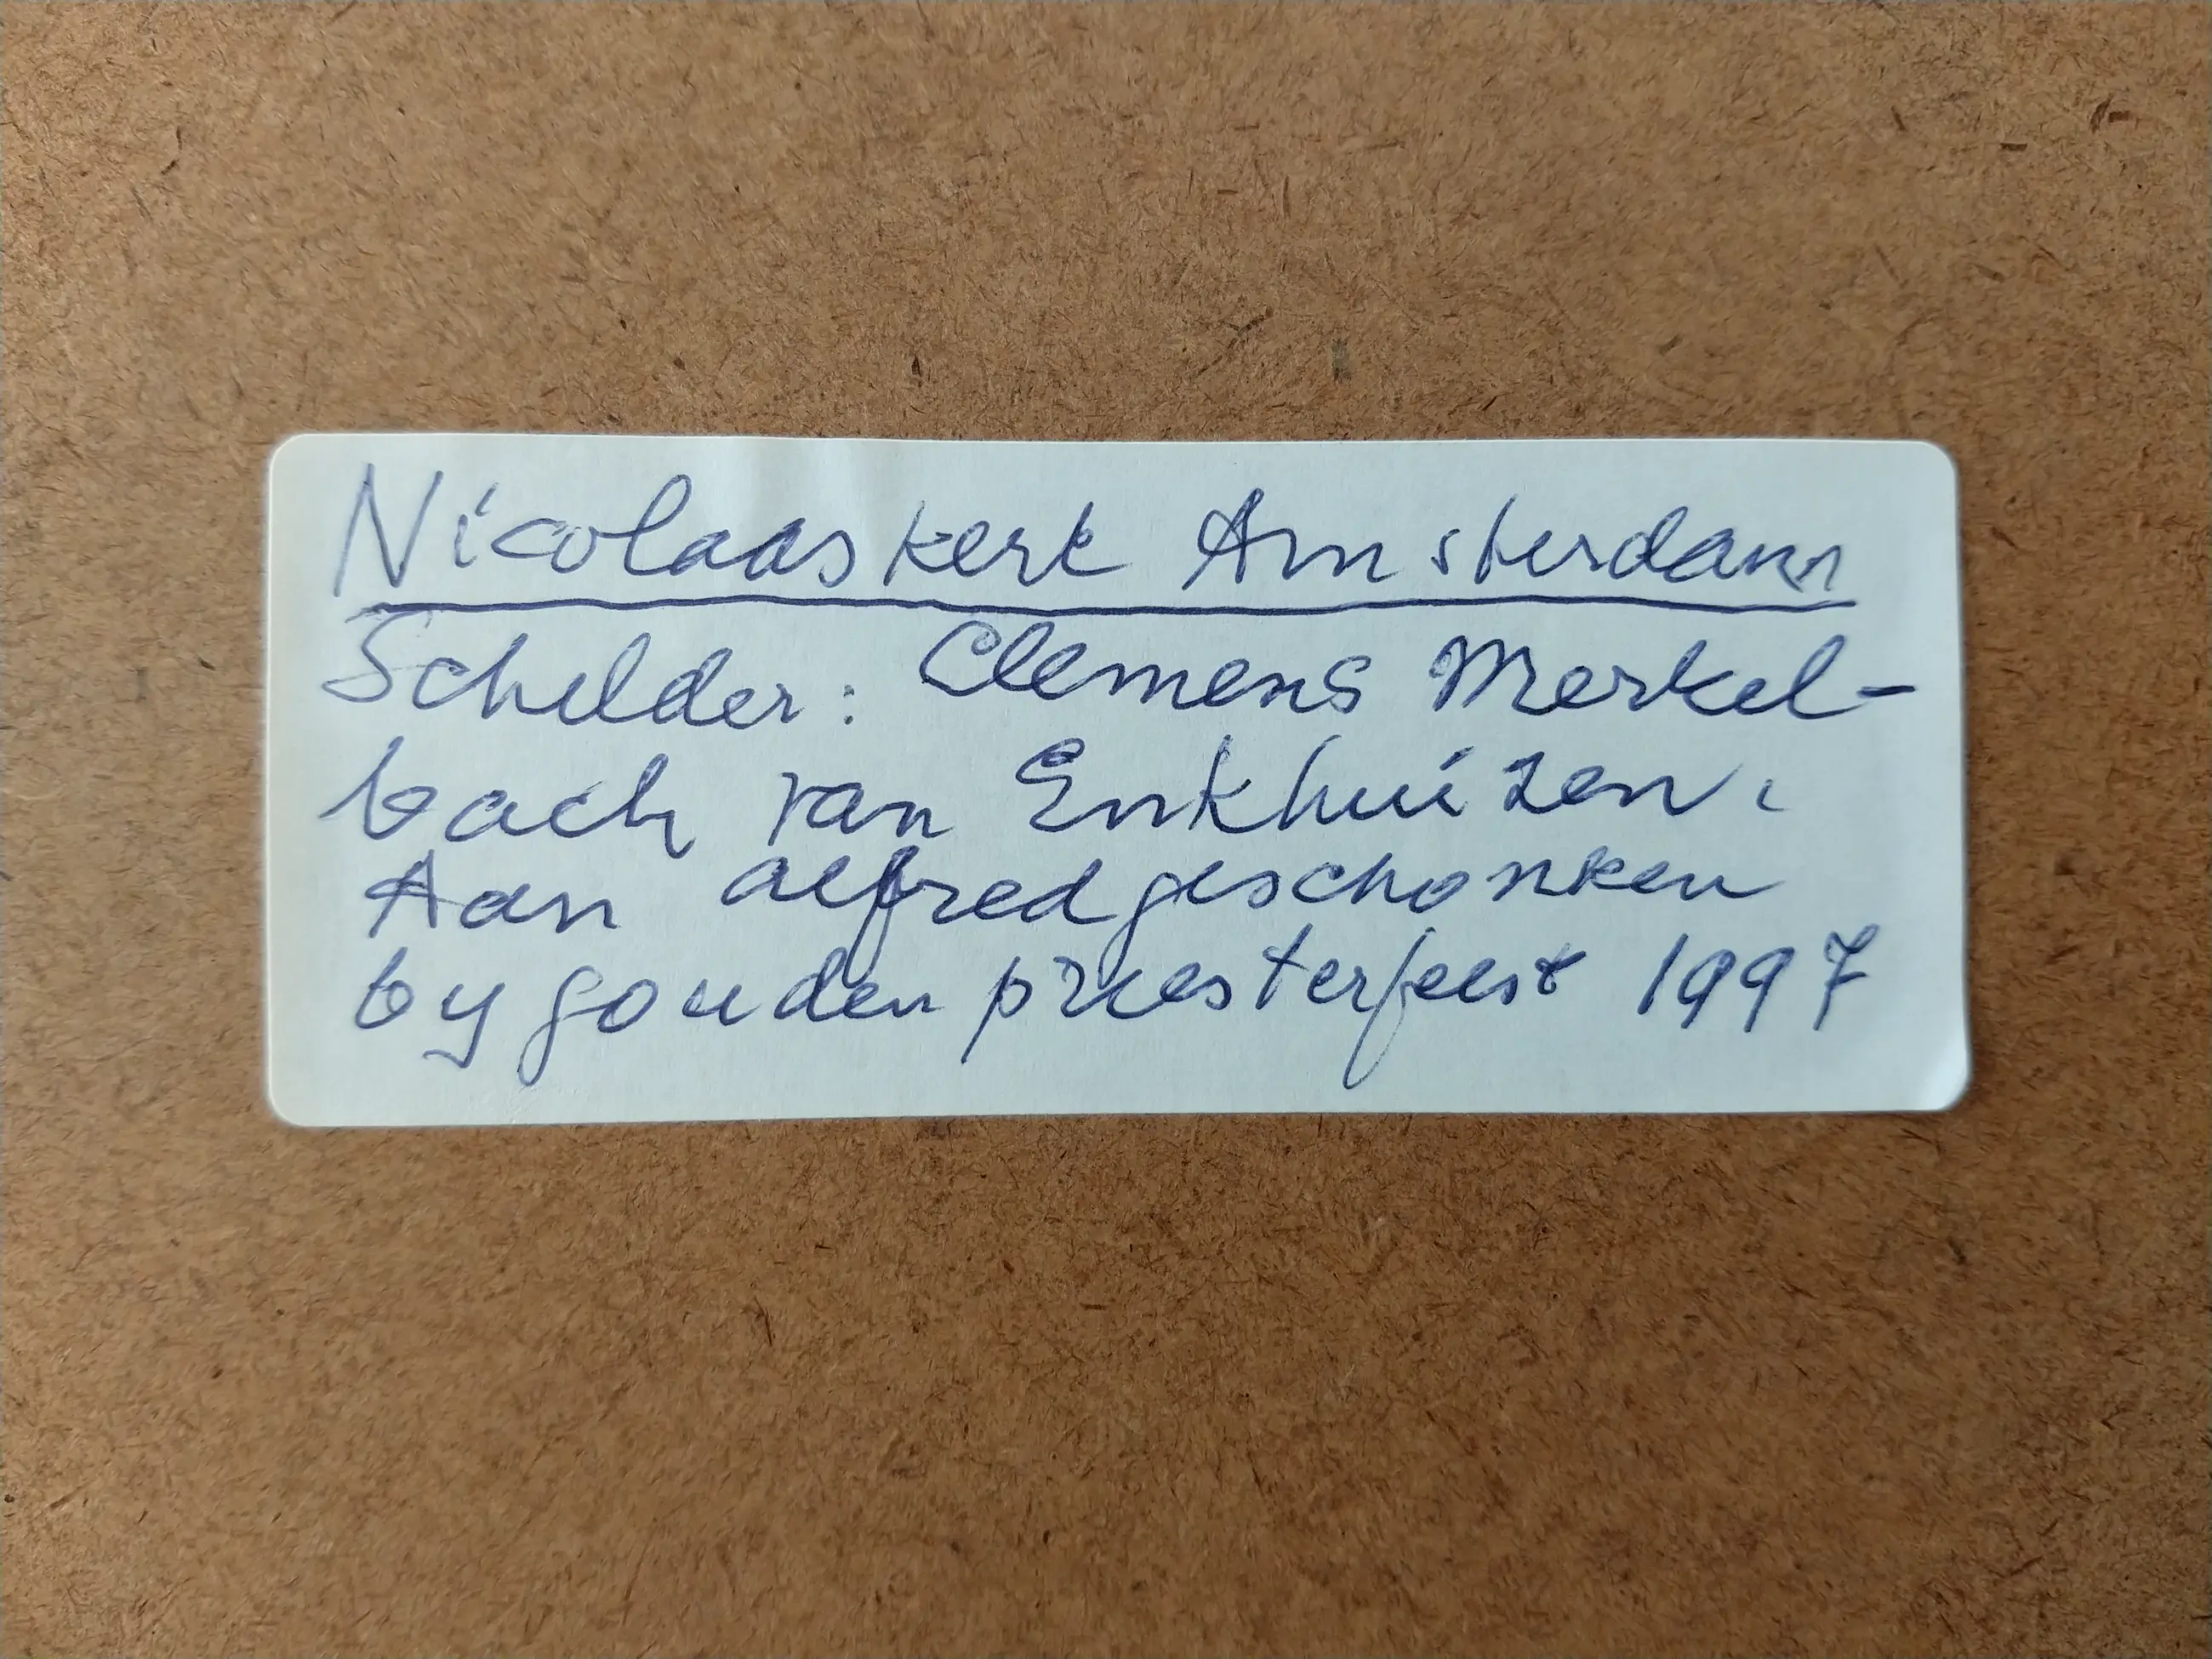 Nicolaaskerk Amsterdam
Schilder: Clemens Merkel-
bach van Enkhuizen.
Aan Alfred geschonken
by gouden priesterfeest 1997